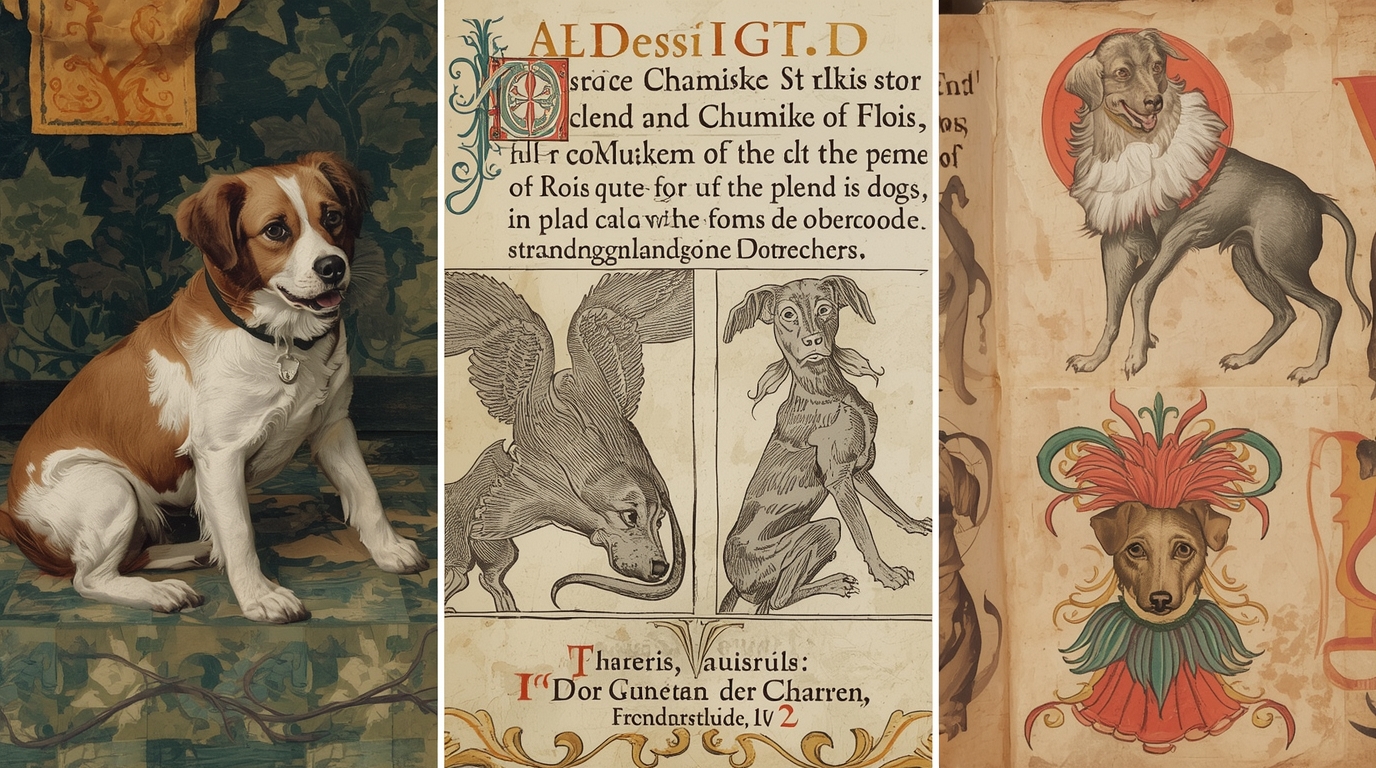 ALDessiIGT.D
srace Chamiske St rlkis stor
clend and Chumike of Flois,
full r coMuikem of the clt the peme
of Rois qute for uf the plend is dogs,
in plad cala withe foms de obercoode.
strandnggnlandgone Dotrechers.
Thareris, Vauisrúls:
I“ Dor Gunetan der Charren,
Frcndarstlude, 1V 2
of